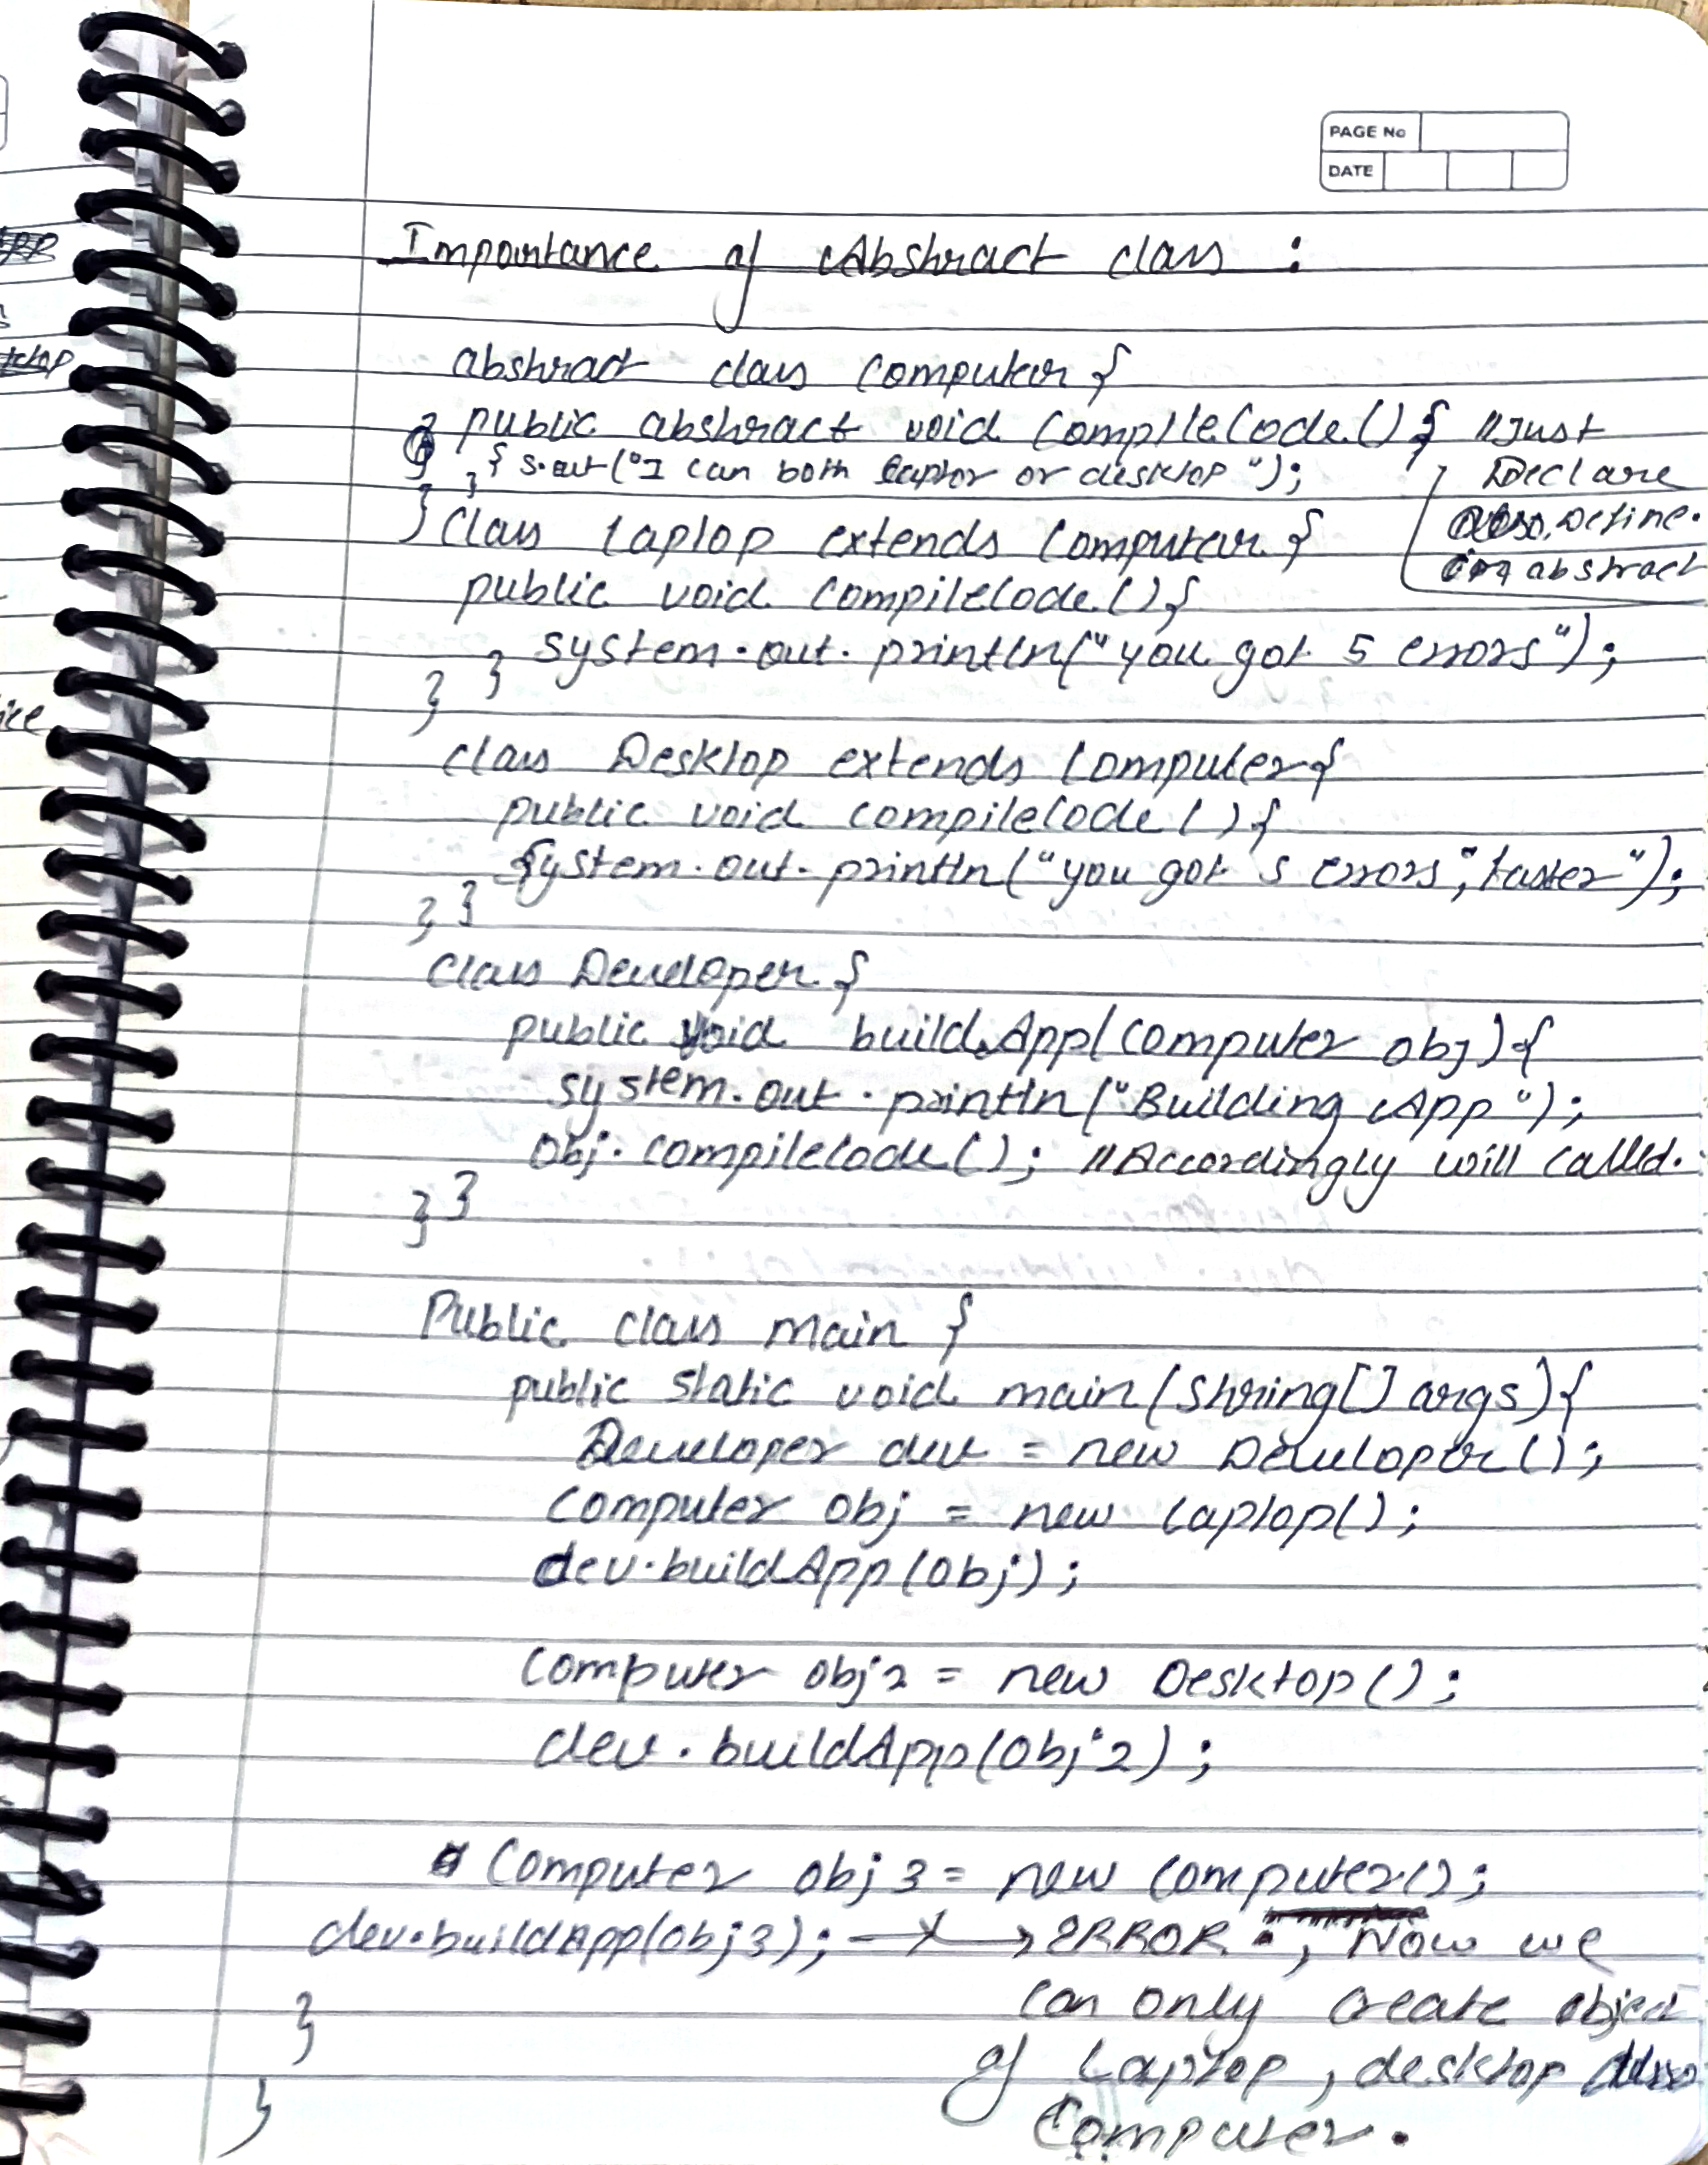 PAGE No
DATE
Importance of Abstract class :
abstract class Computer {
public abstract void CompileCode() { //Just
{ S.out("I can both laptop or desktop"); Declare
} class Laptop extends Computer { Define.
public void compileCode() { abstract
system.out.println("you got 5 errors");
} }
class Desktop extends Computer {
public void compileCode() {
System.out.println("you got 5 errors", faster");
} }
class Developer {
public void buildApp(Computer obj) {
system.out.println("Building App");
obj.compileCode(); //Accordingly will called.
} }
Public class main {
public static void main(String[] args) {
Developer dev = new Developer();
Computer obj = new Laptop();
dev.buildApp(obj);
Computer obj2 = new Desktop();
dev.buildApp(obj2);
Computer obj3 = new Computer();
dev.buildApp(obj3); —x→ ERROR, Now we
} can only create object
of Laptop, desktop
} Computer.